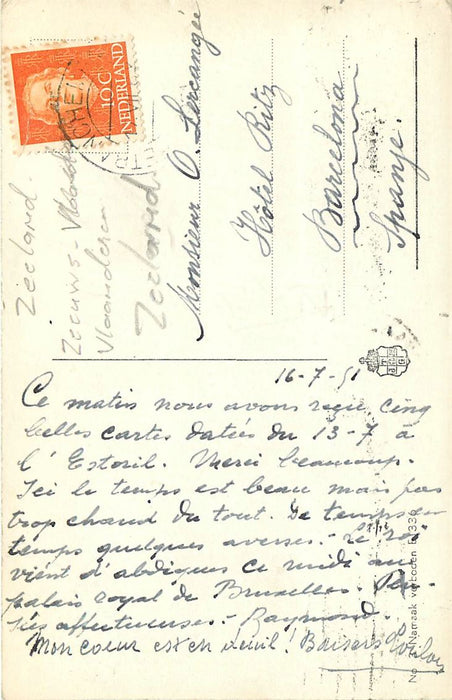 10 C
NEDERLAND
Monsieur O.
Hôtel Ritz
Barcelona
Spanje.
Zeeland.
Zeeuws-Vlaanderen
Vlaanderen
Zeeland
16-7-51
Ce matin nous avons reçu cinq
belles cartes datées du 13-7 à
l'Estoril. Merci beaucoup.
Ici le temps est beau mais pas
trop chaud du tout. De temps en
temps quelques averses. - Le roi
vient d'abdiquer ce midi au
palais royal de Bruxelles. Pen-
sées affectueuses. - Raymond.
Mon coeur est en deuil! Baisers
Namaak verboden